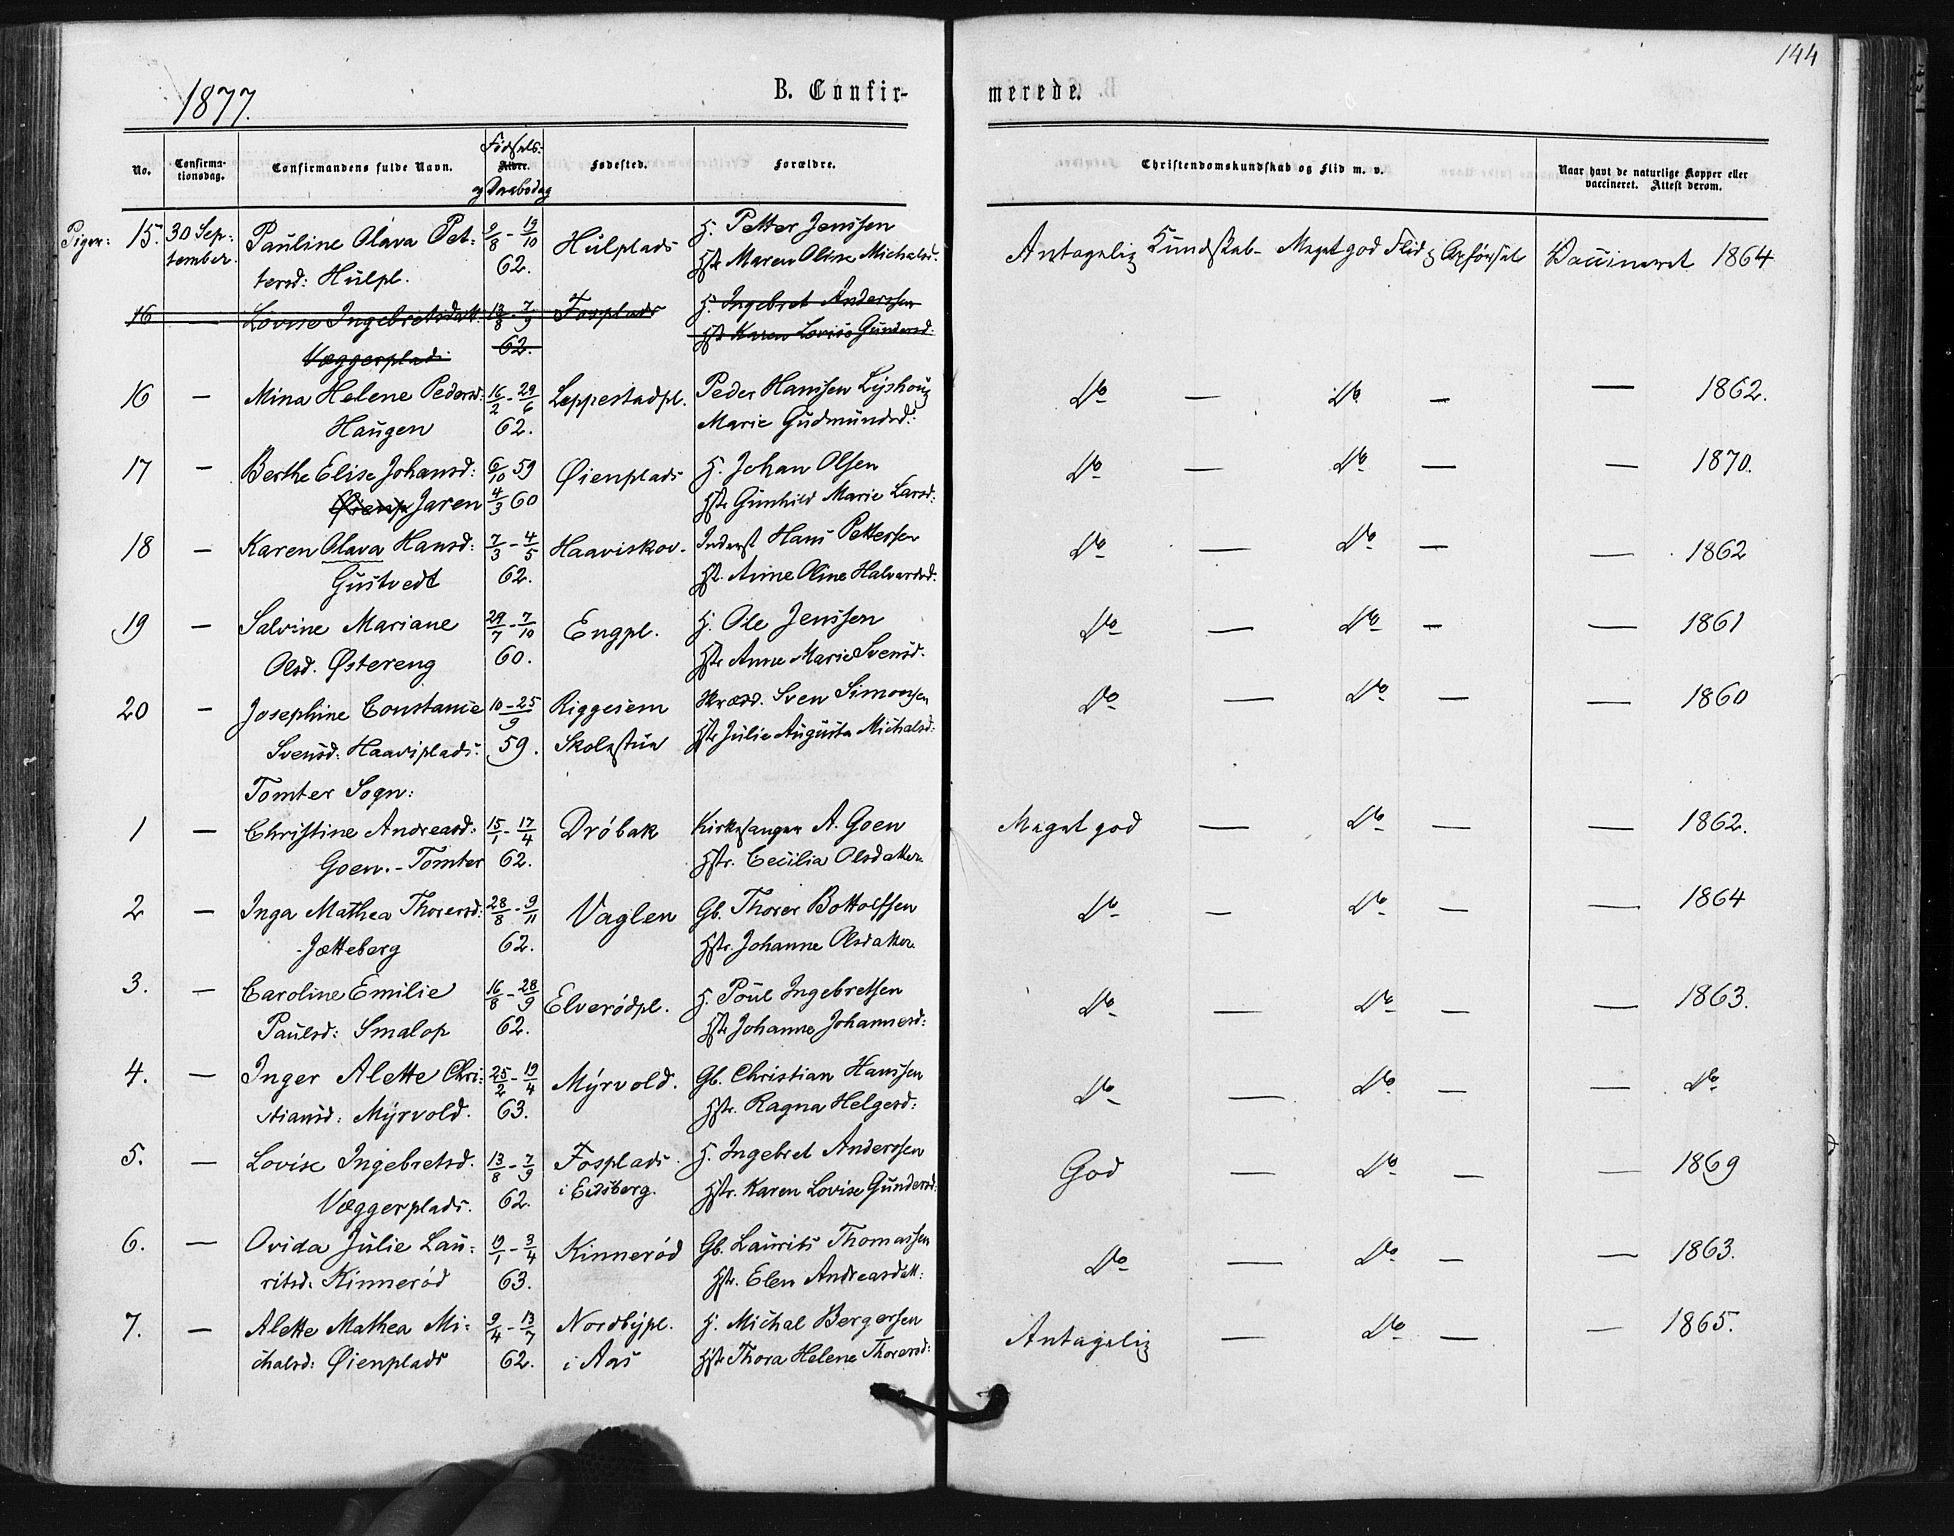 144
1877.
B. Confir-
merede.
No.
Confirma-
tionsdag.
Confirmandens fulde Navn.
Fødsels-
Aldre.
og Daabsdag
Fødested.
Forældre.
Christendomskundskab og Flid m. v.
Naar havt de naturlige Kopper eller
vaccineret. Attest derom.
Piger: 15. 30 Sep- Pauline Olava Pet- 9/8 - 19/10 Hülplads H. Petter Jenssen Antagelig Kundskab- Meget god Flid & Opførsel Vaccineret 1864
tember. tersd: Hülpl. 62. Hstr Maren Oline Michelsd.
16 — Lovise Ingebretsdatt. 13/8 - 7/9 Fosplads H. Ingebret Anderssen
Væggerplads 62. Hstr Karen Lovise Gundersd.
16 — Mina Helene Pedersd: 16/2 - 29/6 Leppestadpl. Peder Hanssen Lyshoug Do — Do — — 1862.
Haugen 62. Marie Gudmundsd.
17 — Berthe Elise Johansd: 6/10 59 Øienplads H. Johan Olsen Do — Do — — 1870.
Øienp Jaren 4/3 60 Hstr Gunhild Marie Larsd:
18 — Karen Olava Hansd: 7/3 - 4/5 Haaviskov. Inderst Hans Pettersen Do — Do — — 1862
Gustvedt 62. Hst. Anne Oline Halvordsd.
19 — Salvine Mariane 29/7 - 7/10 Engpl. H. Ole Jenssen Do — Do — — 1861
Olsd. Østereng 60. Hstr Anne Marie Svensd.
20 — Josephine Constance 10-25/9 Riggesiem Skræd. Sven Simonsen Do — Do — — 1860
Svensd: Haaviplads. 59. Skolestua Hstr Julie Augusta Michalsd:
Tomter Sogn:
1 — Christine Andreasd. 15/1 - 17/4 Drøbak Kirkesanger A. Goen Meget god — Do — — 1862.
Goen. - Tomter 62. Hstr. Cecilia Olsdatter
2 — Inga Mathea Thorersd: 28/8 - 9/11 Vaglen Gb. Thorer Bottolfsen Do — Do — — 1864
Jætteberg 62. Hstr. Johanne Olsdatter
3. — Caroline Emilie 16/8 - 28/9 Elverødpl. H. Poul Ingebretsen Do — Do — — 1863.
Paulsd: Smalop 62. Hstr Johanne Johannesd:
4. — Inger Alette Chri- 25/2 - 19/4 Myrvold. Gb. Christian Hanssen Do — Do — — Do
stiansd: Myrvold. 63. Hstr. Ragna Helgesd:
5. — Lovise Ingebretsd. 13/8 - 7/9 Fosplads H. Ingebret Anderssen God — Do — — 1869
Væggerplads. 62. i Eidsberg. Hstr. Karen Lovise Gundersd:
6. — Ovida Julie Lau- 19/1 - 3/4 Kinnerød Gb. Laurits Thomassen Do — Do — — 1863.
ritsd. Kinnerød 63. Hstr. Elen Andreasdatt:
7. — Alette Mathea Mi- 9/4 - 13/7 Nordbypl. H. Michal Bergersen Antagelig — Do — — 1865.
chalsd: Øienplads 62. i Aas Hstr Thora Helene Thorersd: